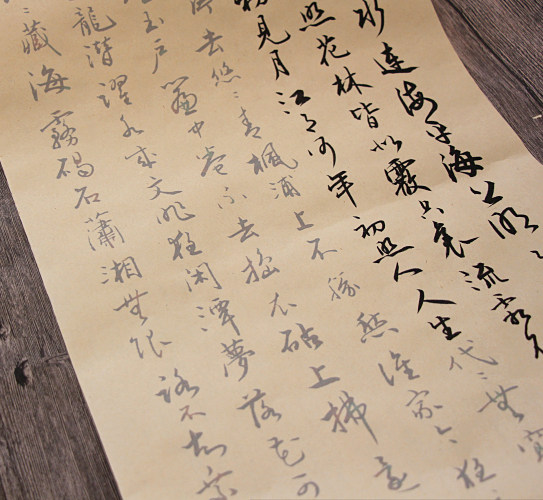 水連海平海上明
照花林皆似霰空裏流霜不
初見月江月何年初照人人生代〻無窮
去悠〻青楓浦上不勝愁誰家今夜
玉戶簾中卷不去搗衣砧上拂還
龍潛躍水成文昨夜閑潭夢落花可
藏海霧碣石瀟湘無限路不知乘